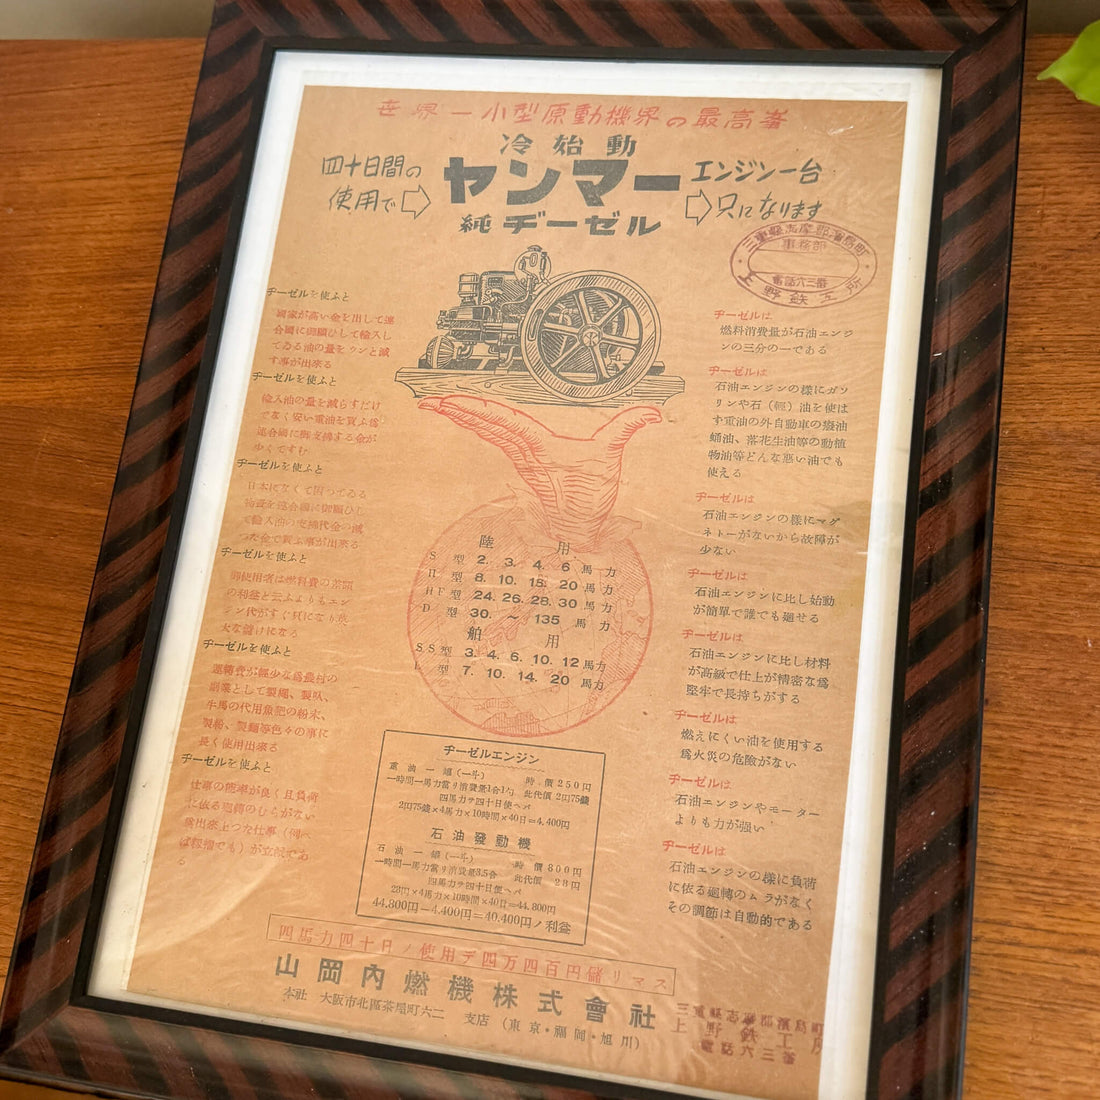 世界一小型原動機界の最高峯
冷始動
四十日間の
使用で
ヤンマー
エンジン一台
只になります
純ヂーゼル
三重縣志摩郡濱島町
事務部
電話六三番
上野鉄工所
ヂーゼルを使ふと
國家が高い金を出して連
合國に御願ひして輸入し
てゐる油の量をウンと減
す事が出來る
ヂーゼルを使ふと
輸入油の量を減らすだけ
でなく安い重油を買ふ爲
連合國に御支拂する金が
少くてすむ
ヂーゼルを使ふと
日本になくて困つてゐる
物資を連合國に御願ひし
て輸入油の支拂代金の減
つた金で買ふ事が出來る
ヂーゼルを使ふと
御使用者は燃料費の差額
の利益と云ふよりもエン
ジン代がすぐ只になり莫
大な儲けになる
ヂーゼルを使ふと
運轉費が輕少な爲農村の
副業として製繩、製叺、
牛馬の代用魚肥の粉末、
製粉、製麺等色々の事に
長く使用出來る
ヂーゼルを使ふと
仕事の能率が良く且負荷
に依る廻轉のむらがない
爲出來上つた仕事（例へ
ば籾摺でも）が立派であ
る
ヂーゼルは
燃料消費量が石油エンジ
ンの三分の一である
ヂーゼルは
石油エンジンの様にガソ
リンや石（輕）油を使は
ず重油の外自動車の癈油
蛹油、落花生油等の動植
物油等どんな悪い油でも
使える
ヂーゼルは
石油エンジンの様にマグ
ネトーがないから故障が
少ない
ヂーゼルは
石油エンジンに比し始動
が簡單で誰でも廻せる
ヂーゼルは
石油エンジンに比し材料
が高級で仕上が精密な爲
堅牢で長持ちがする
ヂーゼルは
燃えにくい油を使用する
爲火災の危險がない
ヂーゼルは
石油エンジンやモーター
よりも力が强い
ヂーゼルは
石油エンジンの様に負荷
に依る廻轉のムラがなく
その調節は自動的である
陸用
S型 2. 3. 4. 6 馬力
H型 8. 10. 18. 20 馬力
HF型 24. 26. 28. 30 馬力
D型 30. ～ 135 馬力
舶用
S.S型 3. 4. 6. 10. 12 馬力
L型 7. 10. 14. 20 馬力
ヂーゼルエンジン
重油一罐(一斗) 時價250円
一時間一馬力當リ消費量1合1勺 此代價2円75錢
四馬力ヲ四十日使ヘバ
2円75錢×4馬力×10時間×40日＝4,400円
石油發動機
石油一罐(一斗) 時價800円
一時間一馬力當リ消費量3.5合 此代價28円
四馬力ヲ四十日使ヘバ
28円×4馬力×10時間×40日＝44,800円
44,800円－4,400円＝40,400円ノ利益
四馬力四十日ノ使用デ四万四百円儲リマス
山岡内燃機株式會社
本社 大阪市北區茶屋町六二 支店（東京・福岡・旭川）
三重縣志摩郡濱島町
上野鉄工所
電話六三番